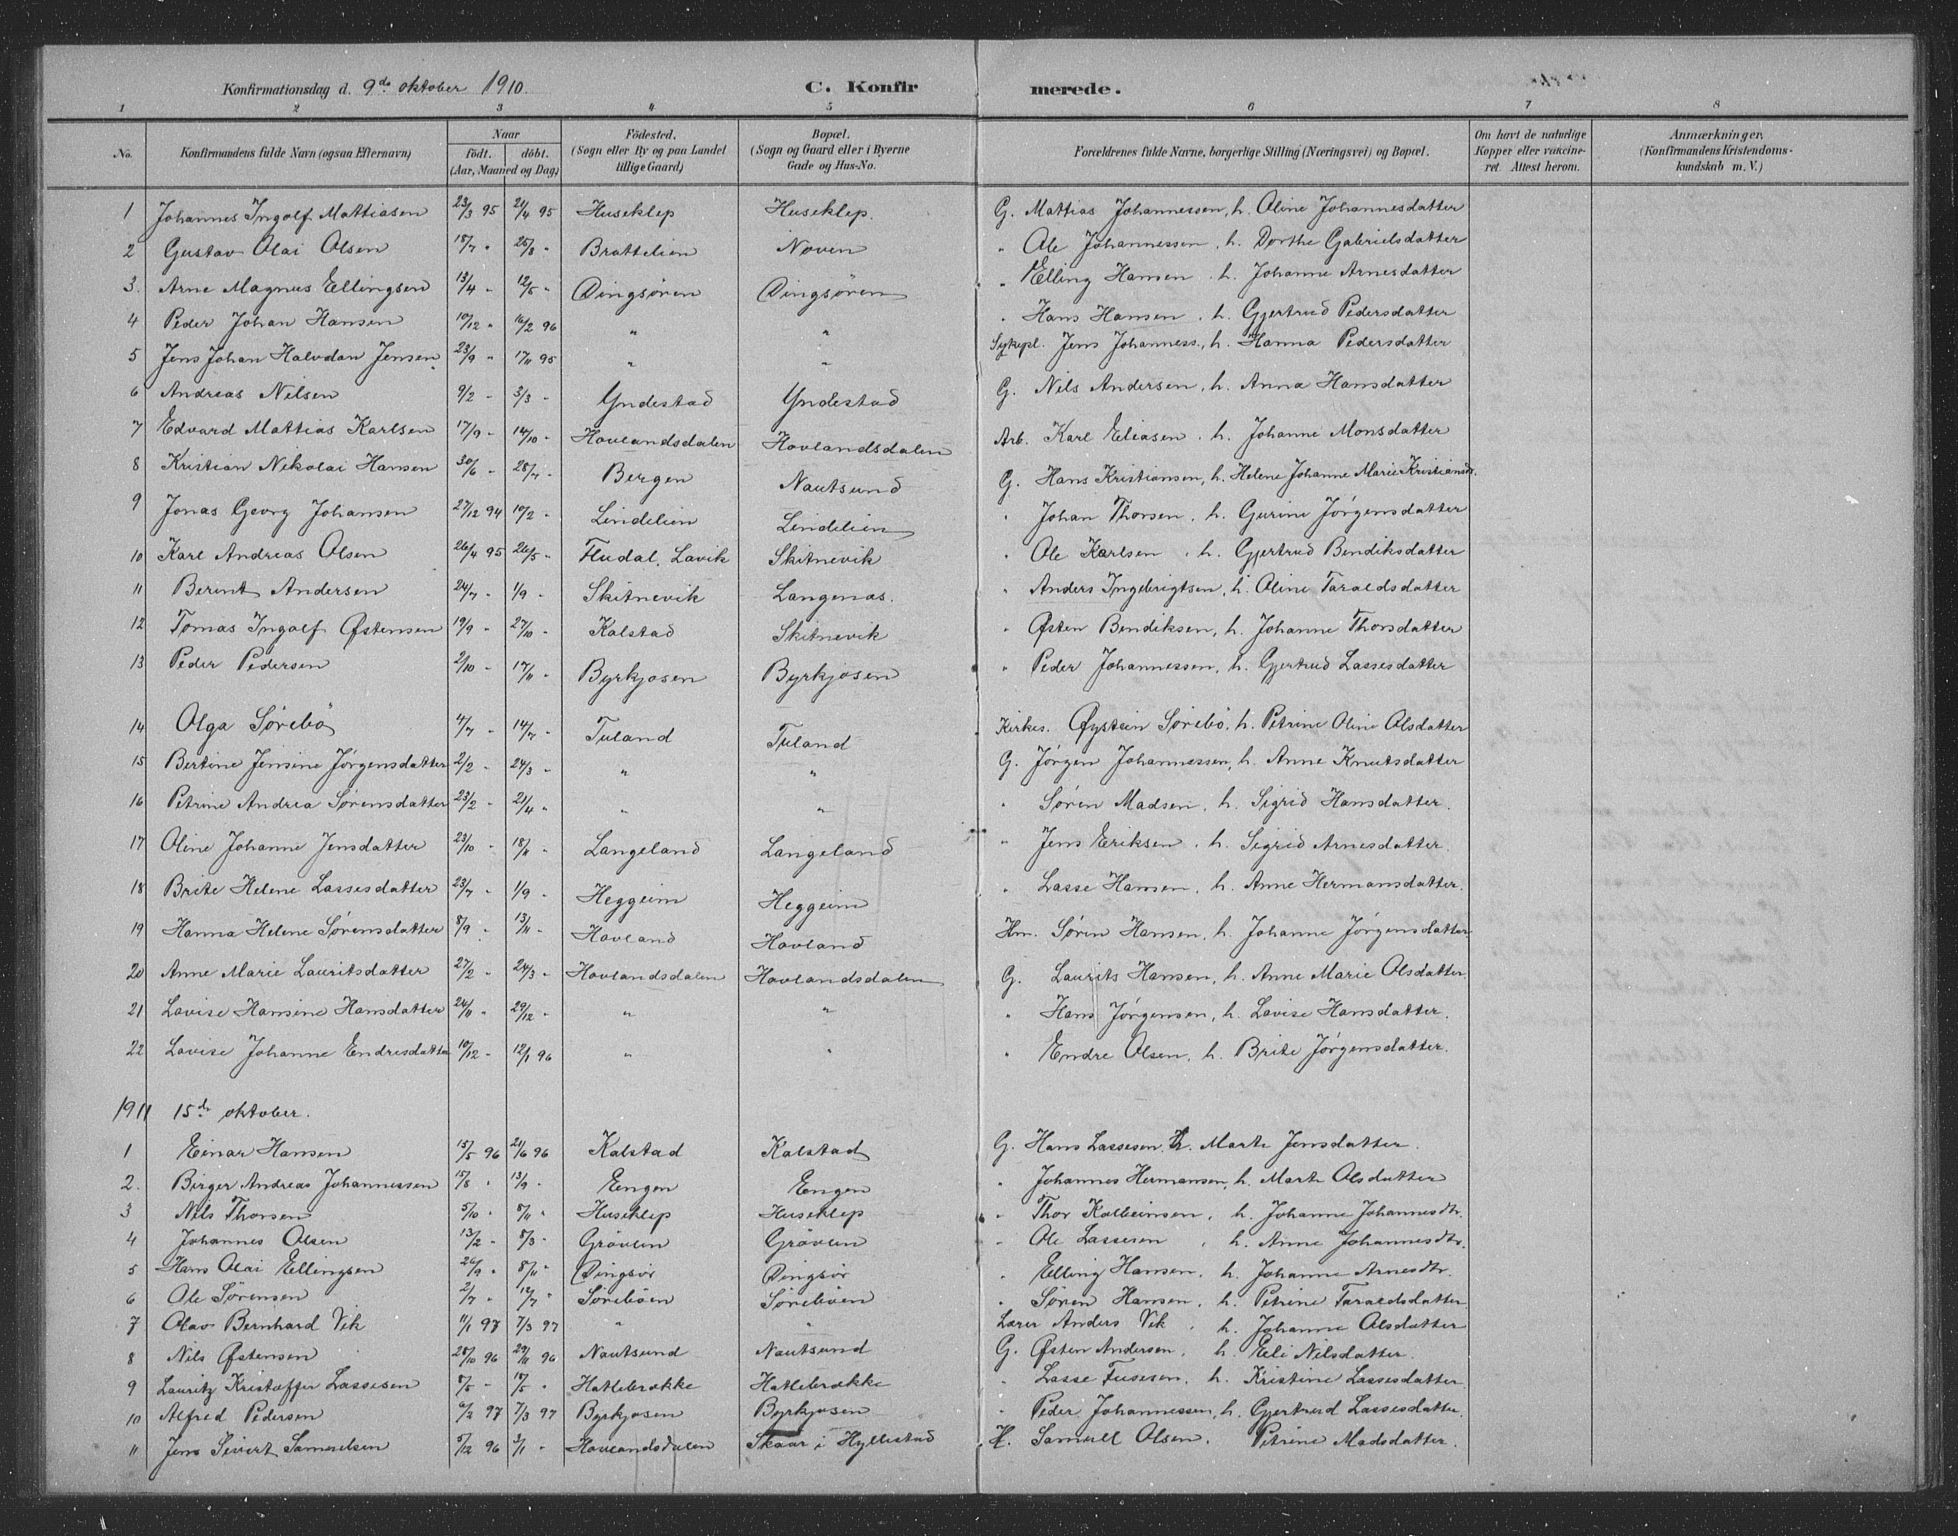 Konfirmationsdag d. 9de oktober 1910. C. Konfirmerede.
1 2 3 4 5 6 7 8
No. Konfirmandens fulde Navn (ogsaa Efternavn) Naar födt. döbt. (Aar, Maaned og Dag) Födested. (Sogn eller By og paa Landet tillige Gaard) Bopæl. (Sogn og Gaard eller i Byerne Gade og Hus-No. Forældrenes fulde Navne, borgerlige Stilling (Næringsvei) og Bopæl. Om havt de naturlige Kopper eller vakcineret. Attest herom. Anmærkninger. (Konfirmandens Kristendomskundskab m. V.)
1 Johannes Ingolf Mattiasen 23/3 95 21/4 95 Huseklep Huseklep. G. Mattias Johannessen, h. Oline Johannesdatter
2 Gustav Olai Olsen 18/7 " 25/8 " Brattelien Noven " Ole Johannessen, h. Dorthe Gabrielsdatter
3. Arne Magnus Ellingsen 13/4 " 12/5 " Dingsören Dingsören " Elling Hansen, h. Johanne Arnesdatter
4 Peder Johan Hansen 10/12 " 16/2 96 " " " Hans Hansen, h. Gjertrud Pedersdatter
5 Jens Johan Halvdan Jensen 23/9 " 17/11 95 " " Sykepl. Jens Johanness., h. Hanna Pedersdatter
6 Andreas Nilsen 9/2 " 3/3 " Yndestad Yndestad G. Nils Andersen, h. Anna Hansdatter
7 Edvard Mattias Karlsen 17/9 " 14/10 " Hovlandsdalen Hovlandsdalen Arb. Karl Eliasen, h. Johanne Monsdatter
8 Kristian Nikolai Hansen 30/6 " 28/7 " Bergen Nautsund G. Hans Kristiansen, h. Helene Johanne Marie Kristiansdr.
9 Jonas Georg Johansen 27/12 94 10/2 " Lindelien Lindelien " Johan Thorsen, h. Gurine Jørgensdatter
10 Karl Andreas Olsen 26/4 95 26/5 " Fludal, Lavik Skitnevik " Ole Karlsen, h. Gjertrud Bendiksdatter
11 Berent Andersen 24/7 " 1/9 " Skitnevik Langenas. " Anders Ingebrigtsen, h. Oline Taraldsdatter
12 Tomas Ingolf Østensen 19/9 " 27/10 " Kalstad Skitnevik " Østen Bendiksen, h. Johanne Thorsdatter
13 Peder Pedersen 2/10 " 17/11 " Byrkjosen Byrkjosen " Peder Johannessen, h. Gjertrud Lassesdatter
14 Olga Sörebö 4/7 " 14/7 " Tuland Tuland Kirkes. Øystein Sörebö, h. Petrine Oline Olsdatter
15 Bertine Jensine Jørgensdatter 2/2 " 24/3 " " " G. Jørgen Johannessen, h. Anne Knutsdatter
16 Petrine Andrea Sørensdatter 23/2 " 21/4 " " " " Søren Madsen, h. Sigrid Hansdatter.
17 Oline Johanne Jensdatter 23/10 " 18/11 " Langeland Langeland " Jens Eriksen, h. Sigrid Arnesdatter.
18 Brite Helene Lassesdatter 23/7 " 1/9 " Heggeim Heggeim " Lasse Hansen, h. Anne Hermansdatter.
19 Hanna Helene Sørensdatter 8/9 " 13/11 " Hovland Hovland Hm. Søren Hansen, h. Johanne Jørgensdatter
20 Anne Marie Lauritsdatter 27/2 " 24/3 " Hovlandsdalen Hovlandsdalen G. Laurits Hansen, h. Anne Marie Olsdatter
21 Lovise Hansine Hansdatter 24/11 " 29/12 " " " " Hans Jørgensen, h. Lovise Hansdatter.
22 Lovise Johanne Endresdatter 10/12 " 12/1 96 " " " Endre Olsen, h. Brite Jørgensdatter.
1911 15de oktober.
1 Einar Hansen 15/5 96 21/6 96 Kalstad Kalstad G. Hans Lassesen h. Marte Jensdatter.
2. Birger Andreas Johannessen 15/8 " 13/9 " Engen Engen " Johannes Hermansen, h. Marte Olsdatter
3 Nils Thorsen 5/10 " 8/11 " Huseklep Huseklep " Thor Kolbeinsen, h. Johanne Johannesdtr.
4 Johannes Olsen 13/2 " 8/3 " Grövlen Grövlen " Ole Lassesen, h. Anne Johannesdtr.
5 Hans Olai Ellingsen 26/9 " 8/11 " Dingsör Dingsör " Elling Hansen, h. Johanne Arnesdtr.
6 Ole Sörensen 2/7 " 12/7 " Söreböen Söreböen " Søren Hansen, h. Petrine Taraldsdatter
7 Olav Bernhard Vik 11/1 97 7/3 97 " " Lærer Anders Vik, h. Johanne Olsdatter
8 Nils Østensen 28/10 96 29/11 96 Nautsund Nautsund G. Østen Andersen, h. Eli Nilsdatter.
9 Lauritz Kristoffer Lassesen 8/5 " 17/5 " Hatlebrække Hatlebrække " Lasse Tusesen, h. Kristine Lassesdatter
10 Alfred Pedersen 6/2 97 7/3 97 Byrkjosen Byrkjosen " Peder Johannessen, h. Gjertrud Lassesdatter.
11 Jens Sivert Samuelsen 5/12 96 3/1 " Hovlandsdalen Skaar i Hyllestad H. Samuel Olsen, Petrine Madsdatter.